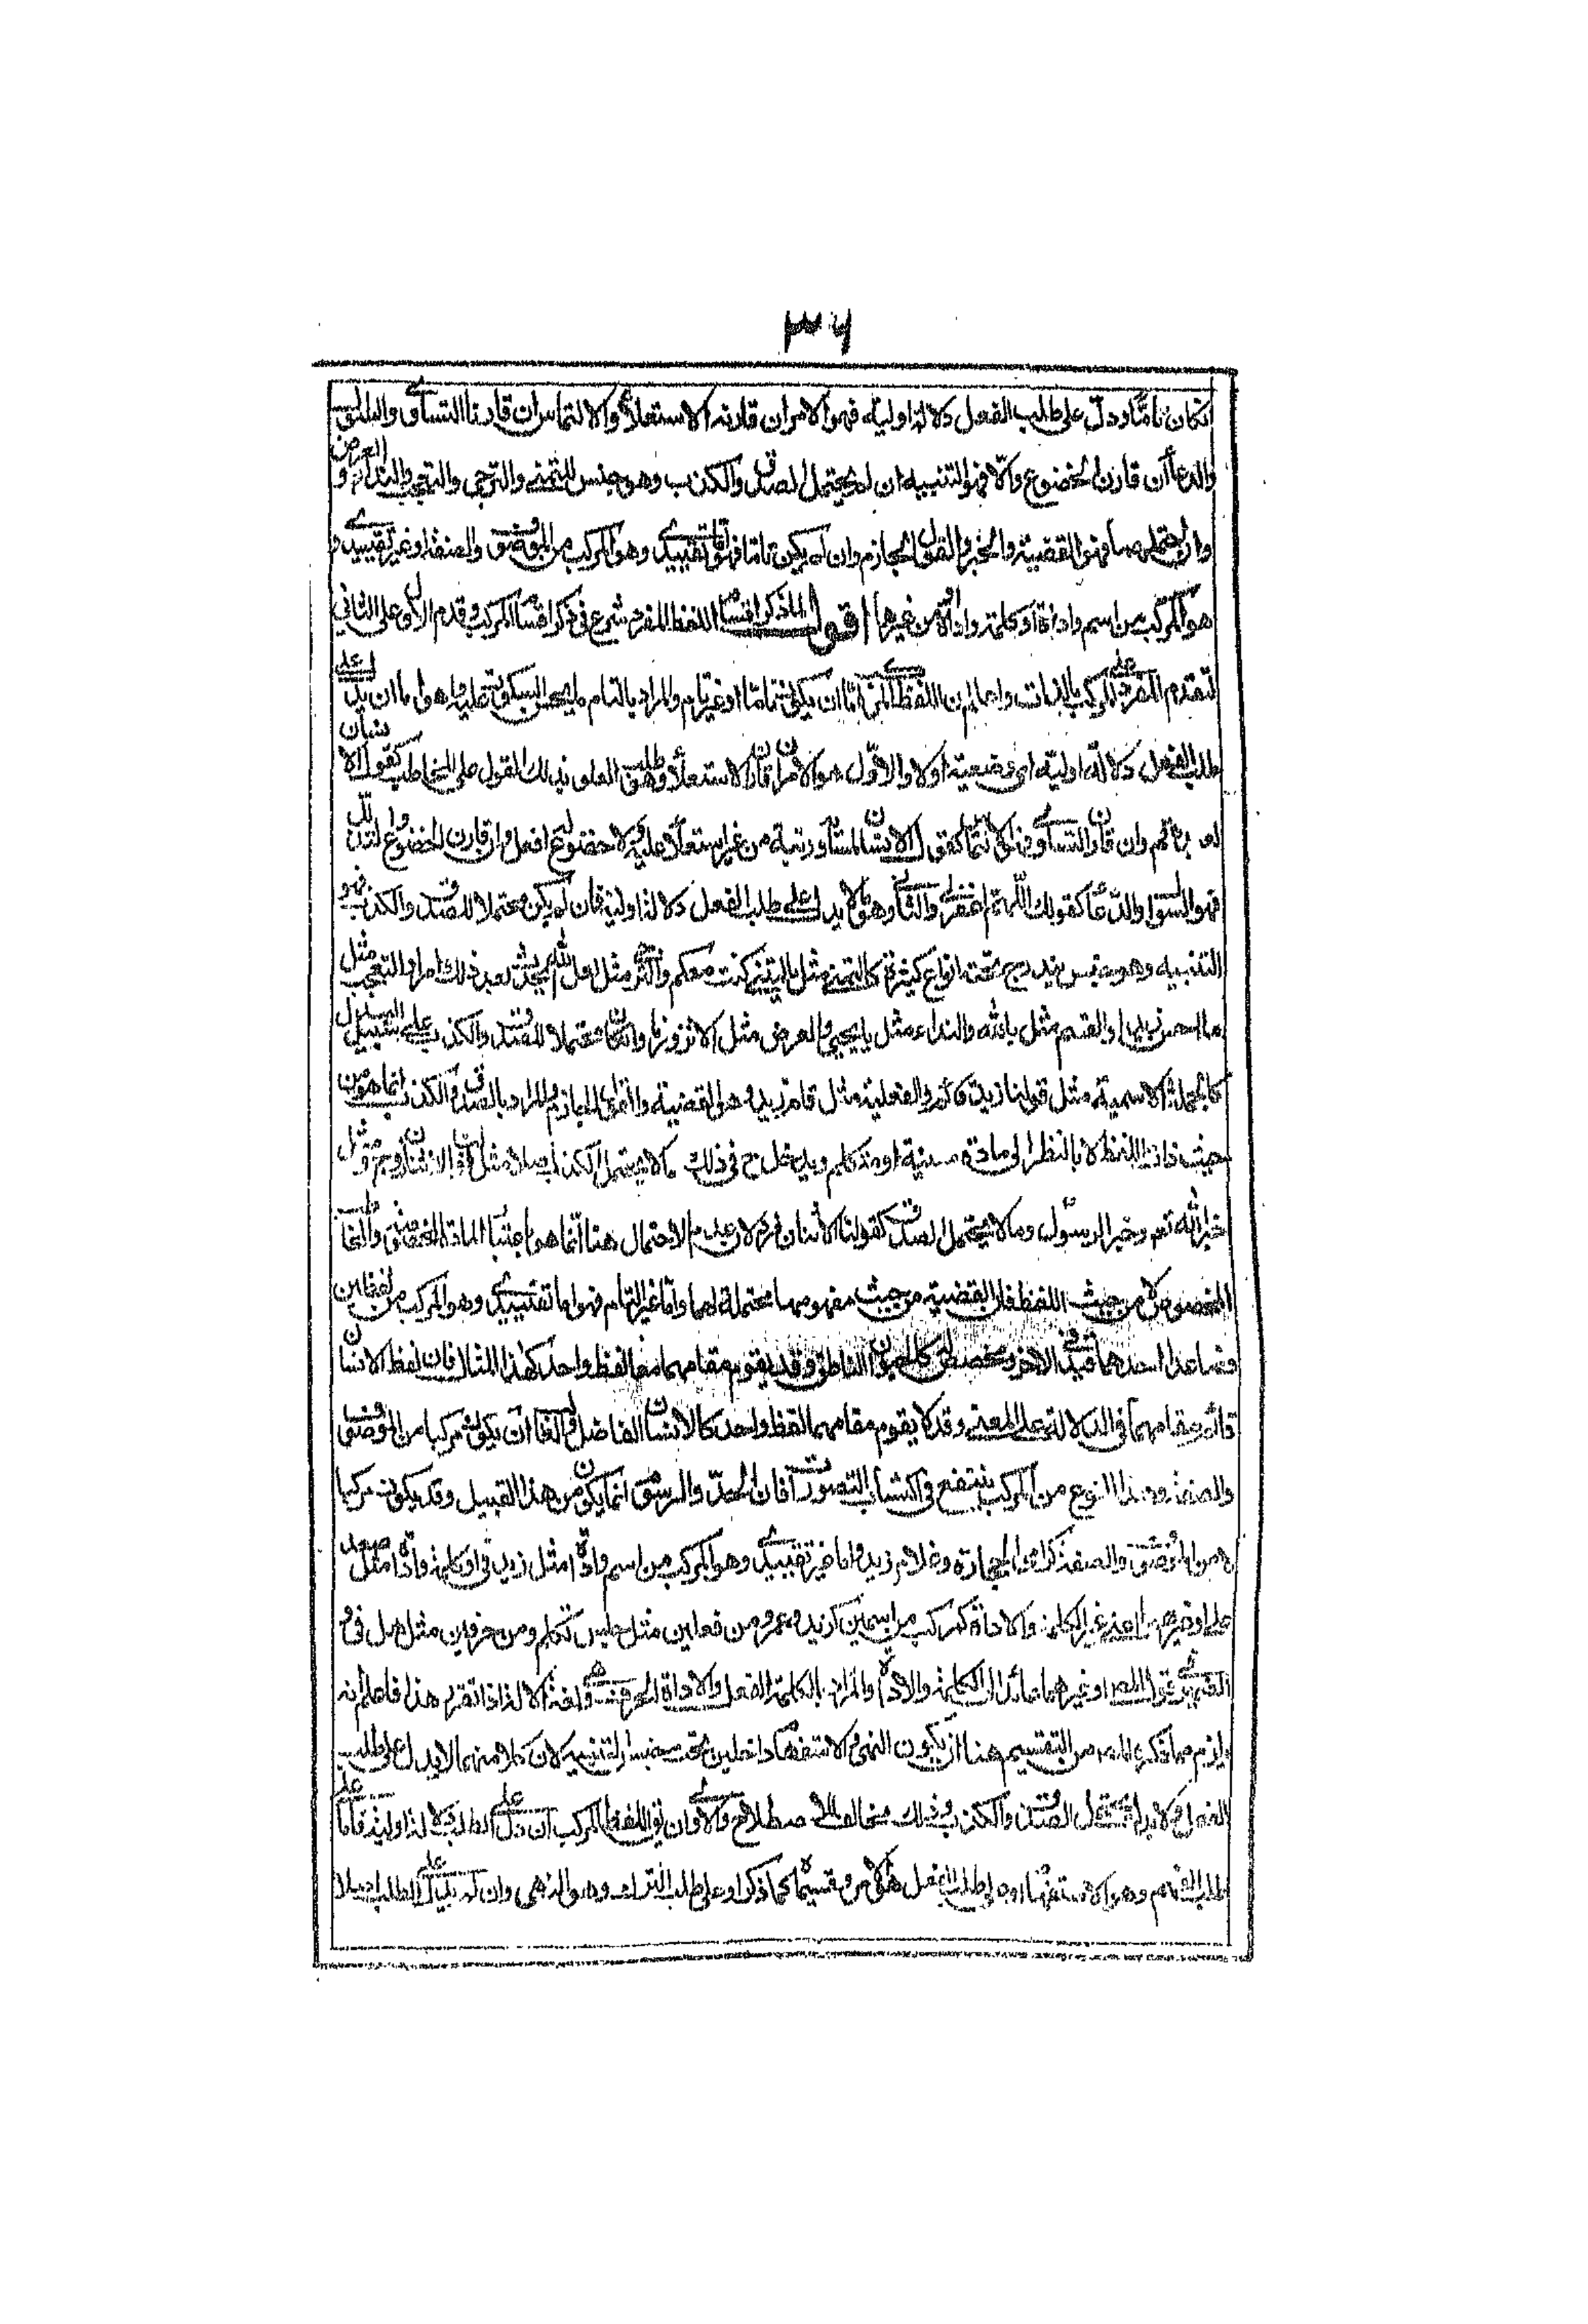 ٣٦
انكان تاما ودل على طلب الفعل دلالة اولية فهو الامر ان قارنه الاستعلاء والالتماس ان قارنا التساوي والسؤال
والدعا ان قارن الخضوع والا فهو التنبيه ان لم يحتمل الصدق والكذب وهو جنس للتمني والترجي والتعجب والنداء والعرض و
وان احتملهما فهو القضية والخبر والقول الجازم وان لم يكن تاما فهو اما تقييدي وهو المركب من الموصوف والصفة او غير تقييدي و
هو المركب من اسم واداة او كلمة واداة او من غيرها اقول لما ذكر اقسام اللفظ المفرد شرع في ذكر اقسام المركب وقدم الاول على الثاني
لتقدم المفرد على المركب بالذات واعلم ان اللفظ المركب اما ان يكون تاما او غير تام والمراد بالتام ما يصح السكوت عليه وهو اما ان يدل على
طلب الفعل دلالة اولية اي وضعية اولا والاول هو الامر ان قارن الاستعلاء وهو طلب العلو بذلك القول على المخاطب كقول الانسان
قم وان قارن التساوي فهو الالتماس كقول الانسان لمساوي رتبة من غير استعلاء عليه ولا خضوع افعل وان قارن الخضوع والتذلل
فهو السؤال والدعا كقولك اللهم اغفر لي والثاني وهو ما لا يدل على طلب الفعل دلالة اولية فان لم يكن محتملا للصدق والكذب فهو
التنبيه وهو جنس يندرج تحته انواع كثيرة كالتمني مثل يا ليتني كنت معكم والترجي مثل لعل الله يحدث بعد ذلك امرا والتعجب مثل
ما احسن زيدا والقسم مثل بالله والنداء مثل يا يحيى والعرض مثل الا تزورنا وان كان محتملا للصدق والكذب على سبيل البدل
كالجملة الاسمية مثل قولنا زيد قائم والفعلية مثل قام زيد وهو القضية والقول الجازم والمراد بالصدق والكذب انما هو من
حيث ذات اللفظ لا بالنظر الى مادة معينة او متكلم ويدخل ح في ذلك ما لا يحتمل الكذب اصلا مثل قولنا الاثنان زوج ومثل
خبر الله تعم وخبر الرسول وما لا يحتمل الصدق كقولنا الاثنان فرد لان عدم الاحتمال هنا انما هو باعتبار المادة المخصوصة والمخاطب
المخصوص لا من حيث اللفظ فان القضية من حيث مفهومها محتملة لهما واما غير التام فهو اما تقييدي وهو المركب من لفظين
فصاعدا احدهما قيد في الاخر ومخصص له كالحيوان الناطق وقد يقوم مقامهما معا لفظ واحد كهذا المثال فان لفظ الانسان
قائم مقامهما في الدلالة على المعنى وقد لا يقوم مقامهما لفظ واحد كالانسان الفاضل والغالب ان يكون مركبا من الموصوف
والصفة وهذا النوع من المركب ينتفع في اكتساب التصورات فان الحد والرسم انما يكون من هذا القبيل وقد يكون مركبا
لا من الموصوف والصفة كرامي الحجارة وغلام زيد واما غير تقييدي وهو المركب من اسم واداة مثل زيد في او كلمة واداة مثل صعد
على او غيرهما اعني غير الكلمة والاداة كمركب من اسمين كزيد وعمرو ومن فعلين مثل جلس تكلم ومن حرفين مثل هل في و
الضمير في قول المص او غيرهما عائد الى الكلمة والاداة والمراد بالكلمة الفعل والاداة الحرف اذا تقرر هذا فاعلم انه
يلزم مما ذكره المص من التقسيم هنا ان يكون النهي والاستفهام داخلين تحت جنس التنبيه لان كلا منهما لا يدل على طلب
الفعل ولا يحتمل الصدق والكذب وذلك مخالف للاصطلاح والاولى ان يق اللفظ المركب ان دل على الطلب دلالة اولية فاما على
طلب الفهم وهو الاستفهام او على طلب الفعل وهو الامر وقسيماه كما ذكر او على طلب الترك وهو النهي وان لم يدل على الطلب اصلا